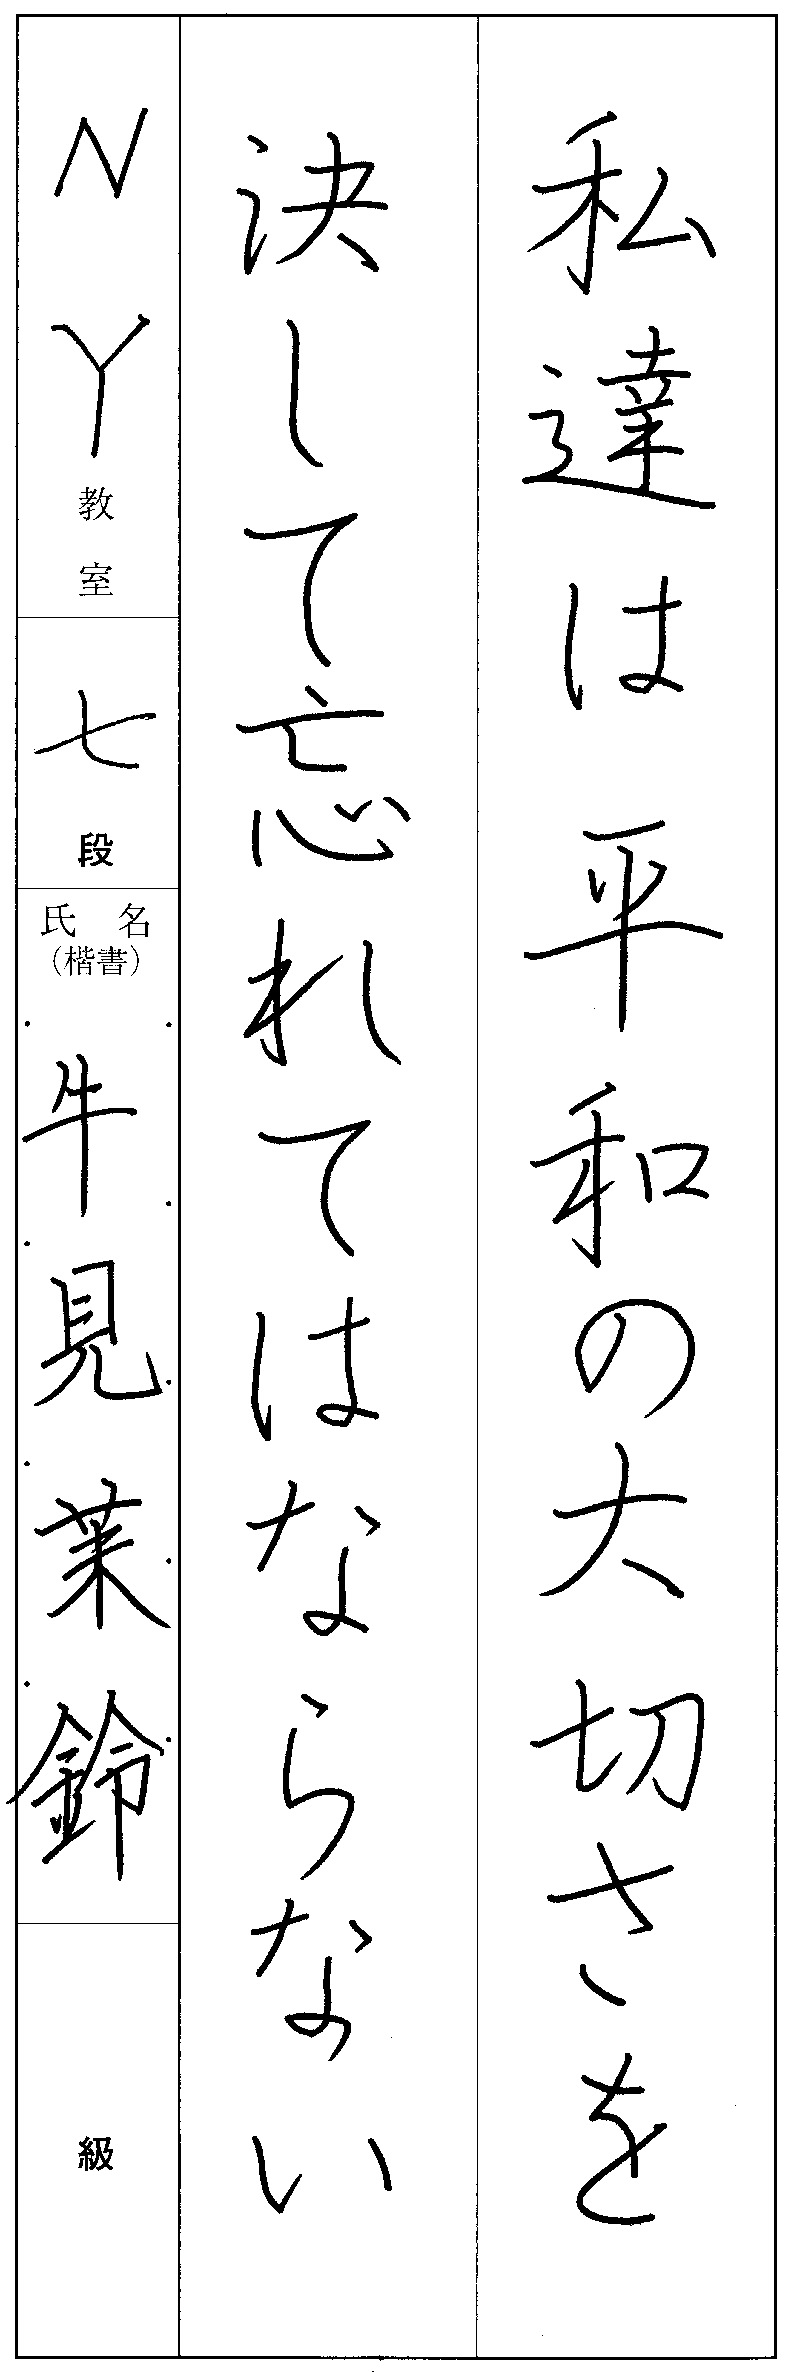 私達は平和の大切さを
決して忘れてはならない
NY教室
七段
氏名
(楷書)
牛見茉鈴
級